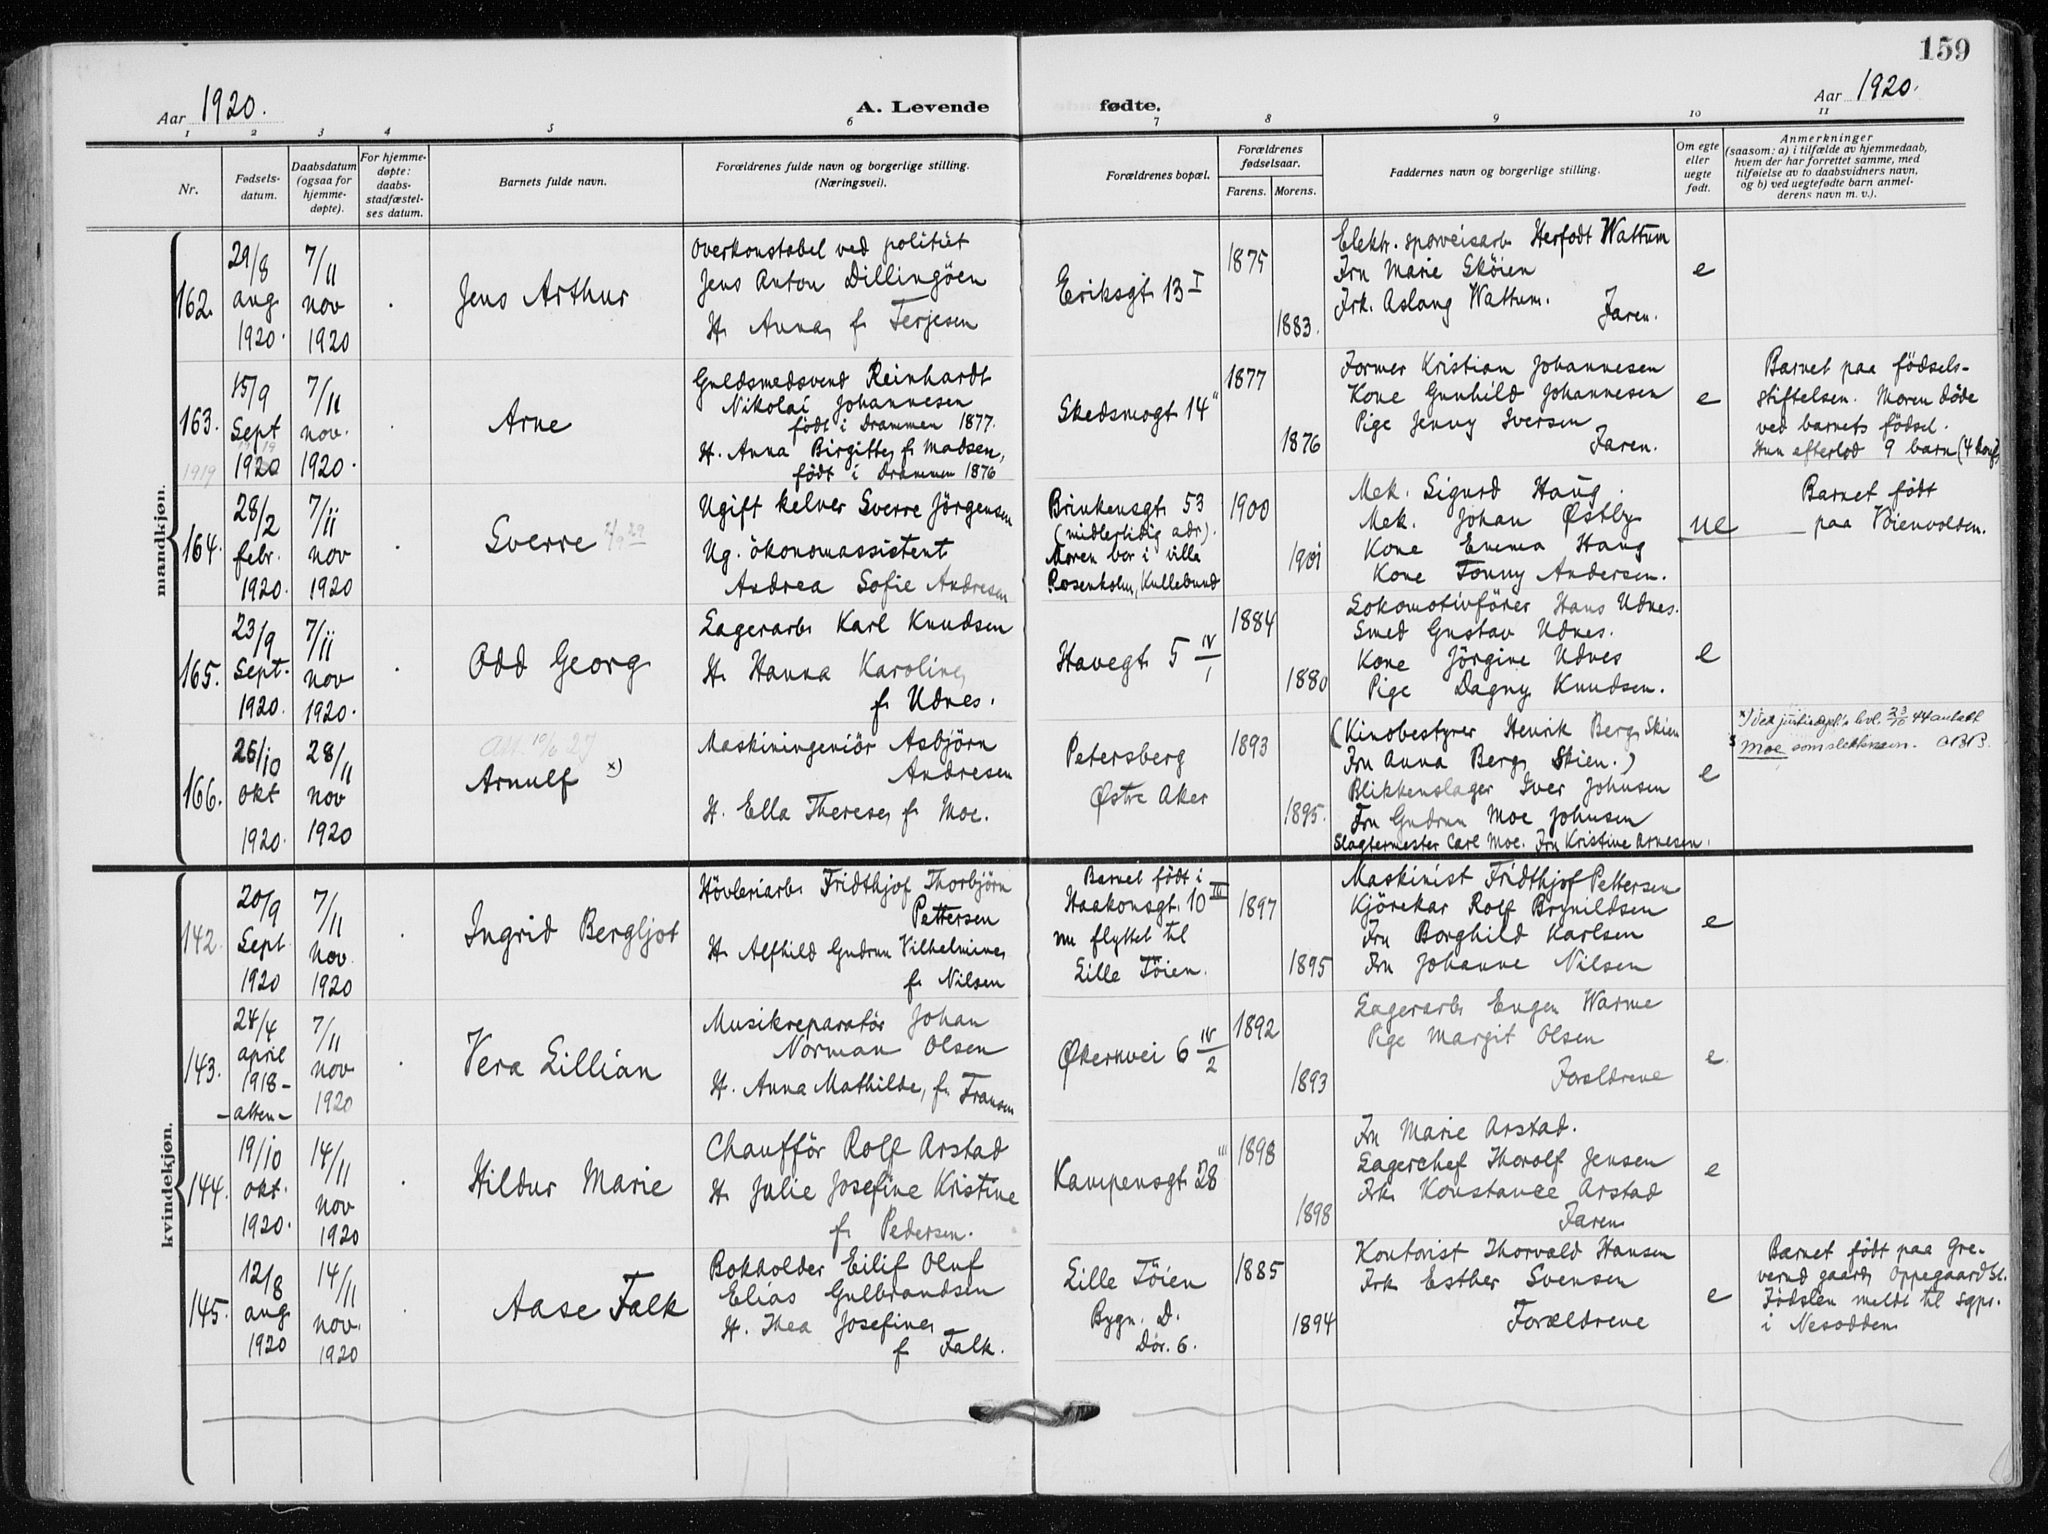 159
Aar 1920.
A. Levende fødte.
Aar 1920.
1 2 3 4 5 6 7 8 9 10 11
Nr.
Fødsels-
datum.
Daabsdatum
(ogsaa for
hjemme-
døpte).
For hjemme-
døpte:
daabs-
stadfæstel-
ses datum.
Barnets fulde navn.
Forældrenes fulde navn og borgerlige stilling.
(Næringsvei).
Forældrenes bopæl.
Forældrenes
fødselsaar.
Farens. Morens.
Faddernes navn og borgerlige stilling.
Om egte
eller
uegte
født.
Anmerkninger
(saasom: a) i tilfælde av hjemmedaab,
hvem der har forrettet samme, med
tilføielse av to daabsvidners navn,
og b) ved uegtefødte barn anmel-
derens navn m. v.).
mandkjøn.
162.
29/8
aug
1920.
7/11
nov
1920
Jens Arthur
Overkonstabel ved politiet
Jens Anton Dillingöen
H. Anna, f. Terjesen
Eriksgt. 13 I
1875
1883.
Elektr. sporveisarb. Herfodt Wattum
Fru Marie Sköien
Frk. Aslaug Wattum.
Faren.
e
163.
1919
15/9
Sept
1920
19
7/11
nov.
1920.
Arne
Guldsmedsvend Reinhardt
Nikolai Johannesen
födt i Drammen 1877.
H. Anna Birgitte, f. Madsen,
födt i Drammen 1876
Skedsmogt. 14 "
1877
1876
Former Kristian Johannesen
Kone Gunhild Johannesen
Pige Jenny Iversen
Faren.
e
Barnet paa födsels-
stiftelsen. Moren döde
ved barnets födsel.
Hun efterlod 9 barn (4 konf.)
164.
28/2
febr.
1920.
7/11
nov
1920
Sverre
Ugift kelner Sverre Jörgensen
Ug. ökonomassistent
Andrea Sofie Andresen
Brinkensgt. 53
(midlertidig adr).
Moren bor i villa
Rosenholm, Kullebund
1900
1901
Mek. Sigurd Haug.
Mek. Johan Østby
Kone Emma Haug
Kone Tonny Andersen.
ue
Barnet födt
paa Voienvolden.
165.
23/9
Sept.
1920.
7/11
nov
1920.
Odd Georg
Lagerarb. Karl Knudsen
H. Hanna Karoline,
f. Udnes.
Havegt. 5 IV/1
1884
1880
Lokomotivförer Hans Udnes.
Smed Gustav Udnes.
Kone Jörgine Udnes
Pige Dagny Knudsen.
e
166.
26/10
okt
1920.
28/11
nov
1920
Att. 10/6 27
Arnulf x)
Maskiningeniör Asbjörn
Andresen
H. Ella Therese, f. Moe.
Petersberg
Østre Aker
1893
1895.
(Kinobestyrer Henrik Berg, Skien
Fru Anna Berg, Skien.)
Blikkenslager Iver Johnsen
Fru Gudrun Moe Johnsen
Slagtermester Carl Moe. Fru Kristine Arnesen.
e
x) Ved justisdept.'s bvl. 23/10 44 antatt
Moe som slektsnavn. OBB.
kvindekjøn.
142.
20/9
Sept
1920
7/11
nov.
1920
Ingrid Bergljot
Hövleriarb. Fridthjof Thorbjörn
Pettersen
H. Alfhild Gudrun Vilhelmine,
f. Nilsen
Barnet födt i
Haakonsgt. 10 III
nu flyttet til
Lille Töien.
1897
1895
Maskinist Fridthjof Pettersen
Kjörekar Rolf Brynildsen
Fru Borghild Karlsen
Fru Johanne Nilsen
e
143.
24/4
april
1918-
-atten-
7/11
nov
1920
Vera Lillian
Musikreparatör Johan
Norman Olsen
H. Anna Mathilde, f. Fransen
Økernvei 6 IV/2
1892
1893
Lagerarb. Eugen Warme
Pige Margit Olsen
Forældrene
e
144.
19/10
okt.
1920.
14/11
nov
1920
Hildur Marie
Chaufför Rolf Arstad
H. Julie Josefine Kristine
f. Pedersen.
Kampensgt. 28 III
1898
1898
Fru Marie Arstad.
Lagerchef Thorolf Jensen
Frk. Konstance Arstad
Faren
e
145.
12/8
aug
1920
14/11
nov.
1920
Aase Falk
Bokholder Eilif Oluf
Elias Gulbrandsen
H. Thea Josefine,
f. Falk.
Lille Töien
Bygn. D.
Dör. 6.
1885
1894
Kontorist Thorvald Hansen
Frk. Esther Svensen
Forældrene
e
Barnet födt paa Gre-
verud gaard, Oppegaard St.
Födslen meldt til sgpr.
i Nesodden